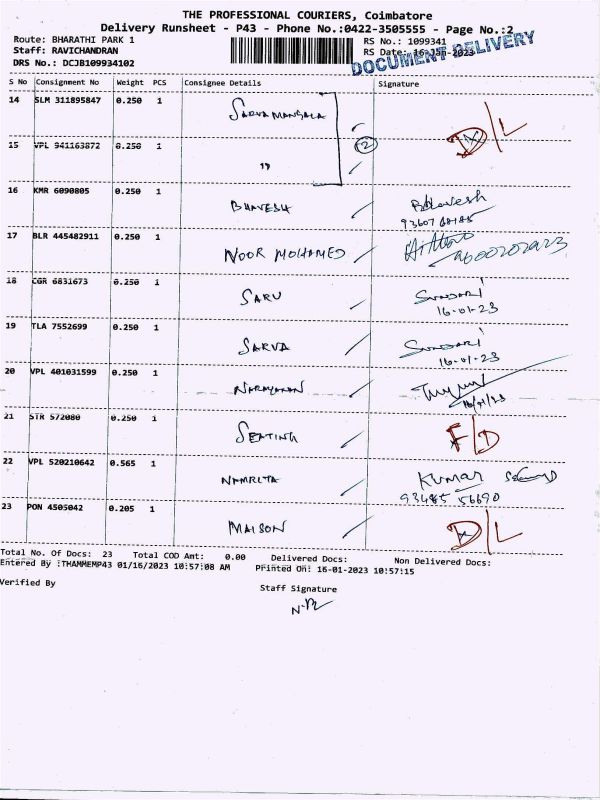 THE PROFESSIONAL COURIERS, Coimbatore
Delivery Runsheet - P43 - Phone No.:0422-3505555 - Page No.:2
Route: BHARATHI PARK 1 RS No.: 1099341
Staff: RAVICHANDRAN RS Date: 16-Jan-2023
DRS No.: DCJB109934102 DOCUMENT DELIVERY
S No Consignment No Weight PCS Consignee Details Signature
14 SLM 311895847 0.250 1 SARVAMANGALA D/L
15 VPL 941163872 0.250 1 " 2
16 KMR 6090805 0.250 1 BHAVESH Bhavesh
93607 68185
17 BLR 445482911 0.250 1 NOOR MOHAMED 9600202923
18 CGR 6831673 0.250 1 SARV SUNDARI
16-01-23
19 TLA 7552699 0.250 1 SARVA SUNDARI
16-01-23
20 VPL 401031599 0.250 1 NARAYANAN
16/01/23
21 STR 572080 0.250 1 F/D
22 VPL 520210642 0.565 1 NAMRITA KUMAR
93485 56690
23 PON 4505042 0.205 1 MAISON D/L
Total No. Of Docs: 23 Total COD Amt: 0.00 Delivered Docs: Non Delivered Docs:
Entered By :THAMMEMP43 01/16/2023 10:57:08 AM Printed On: 16-01-2023 10:57:15
Verified By Staff Signature